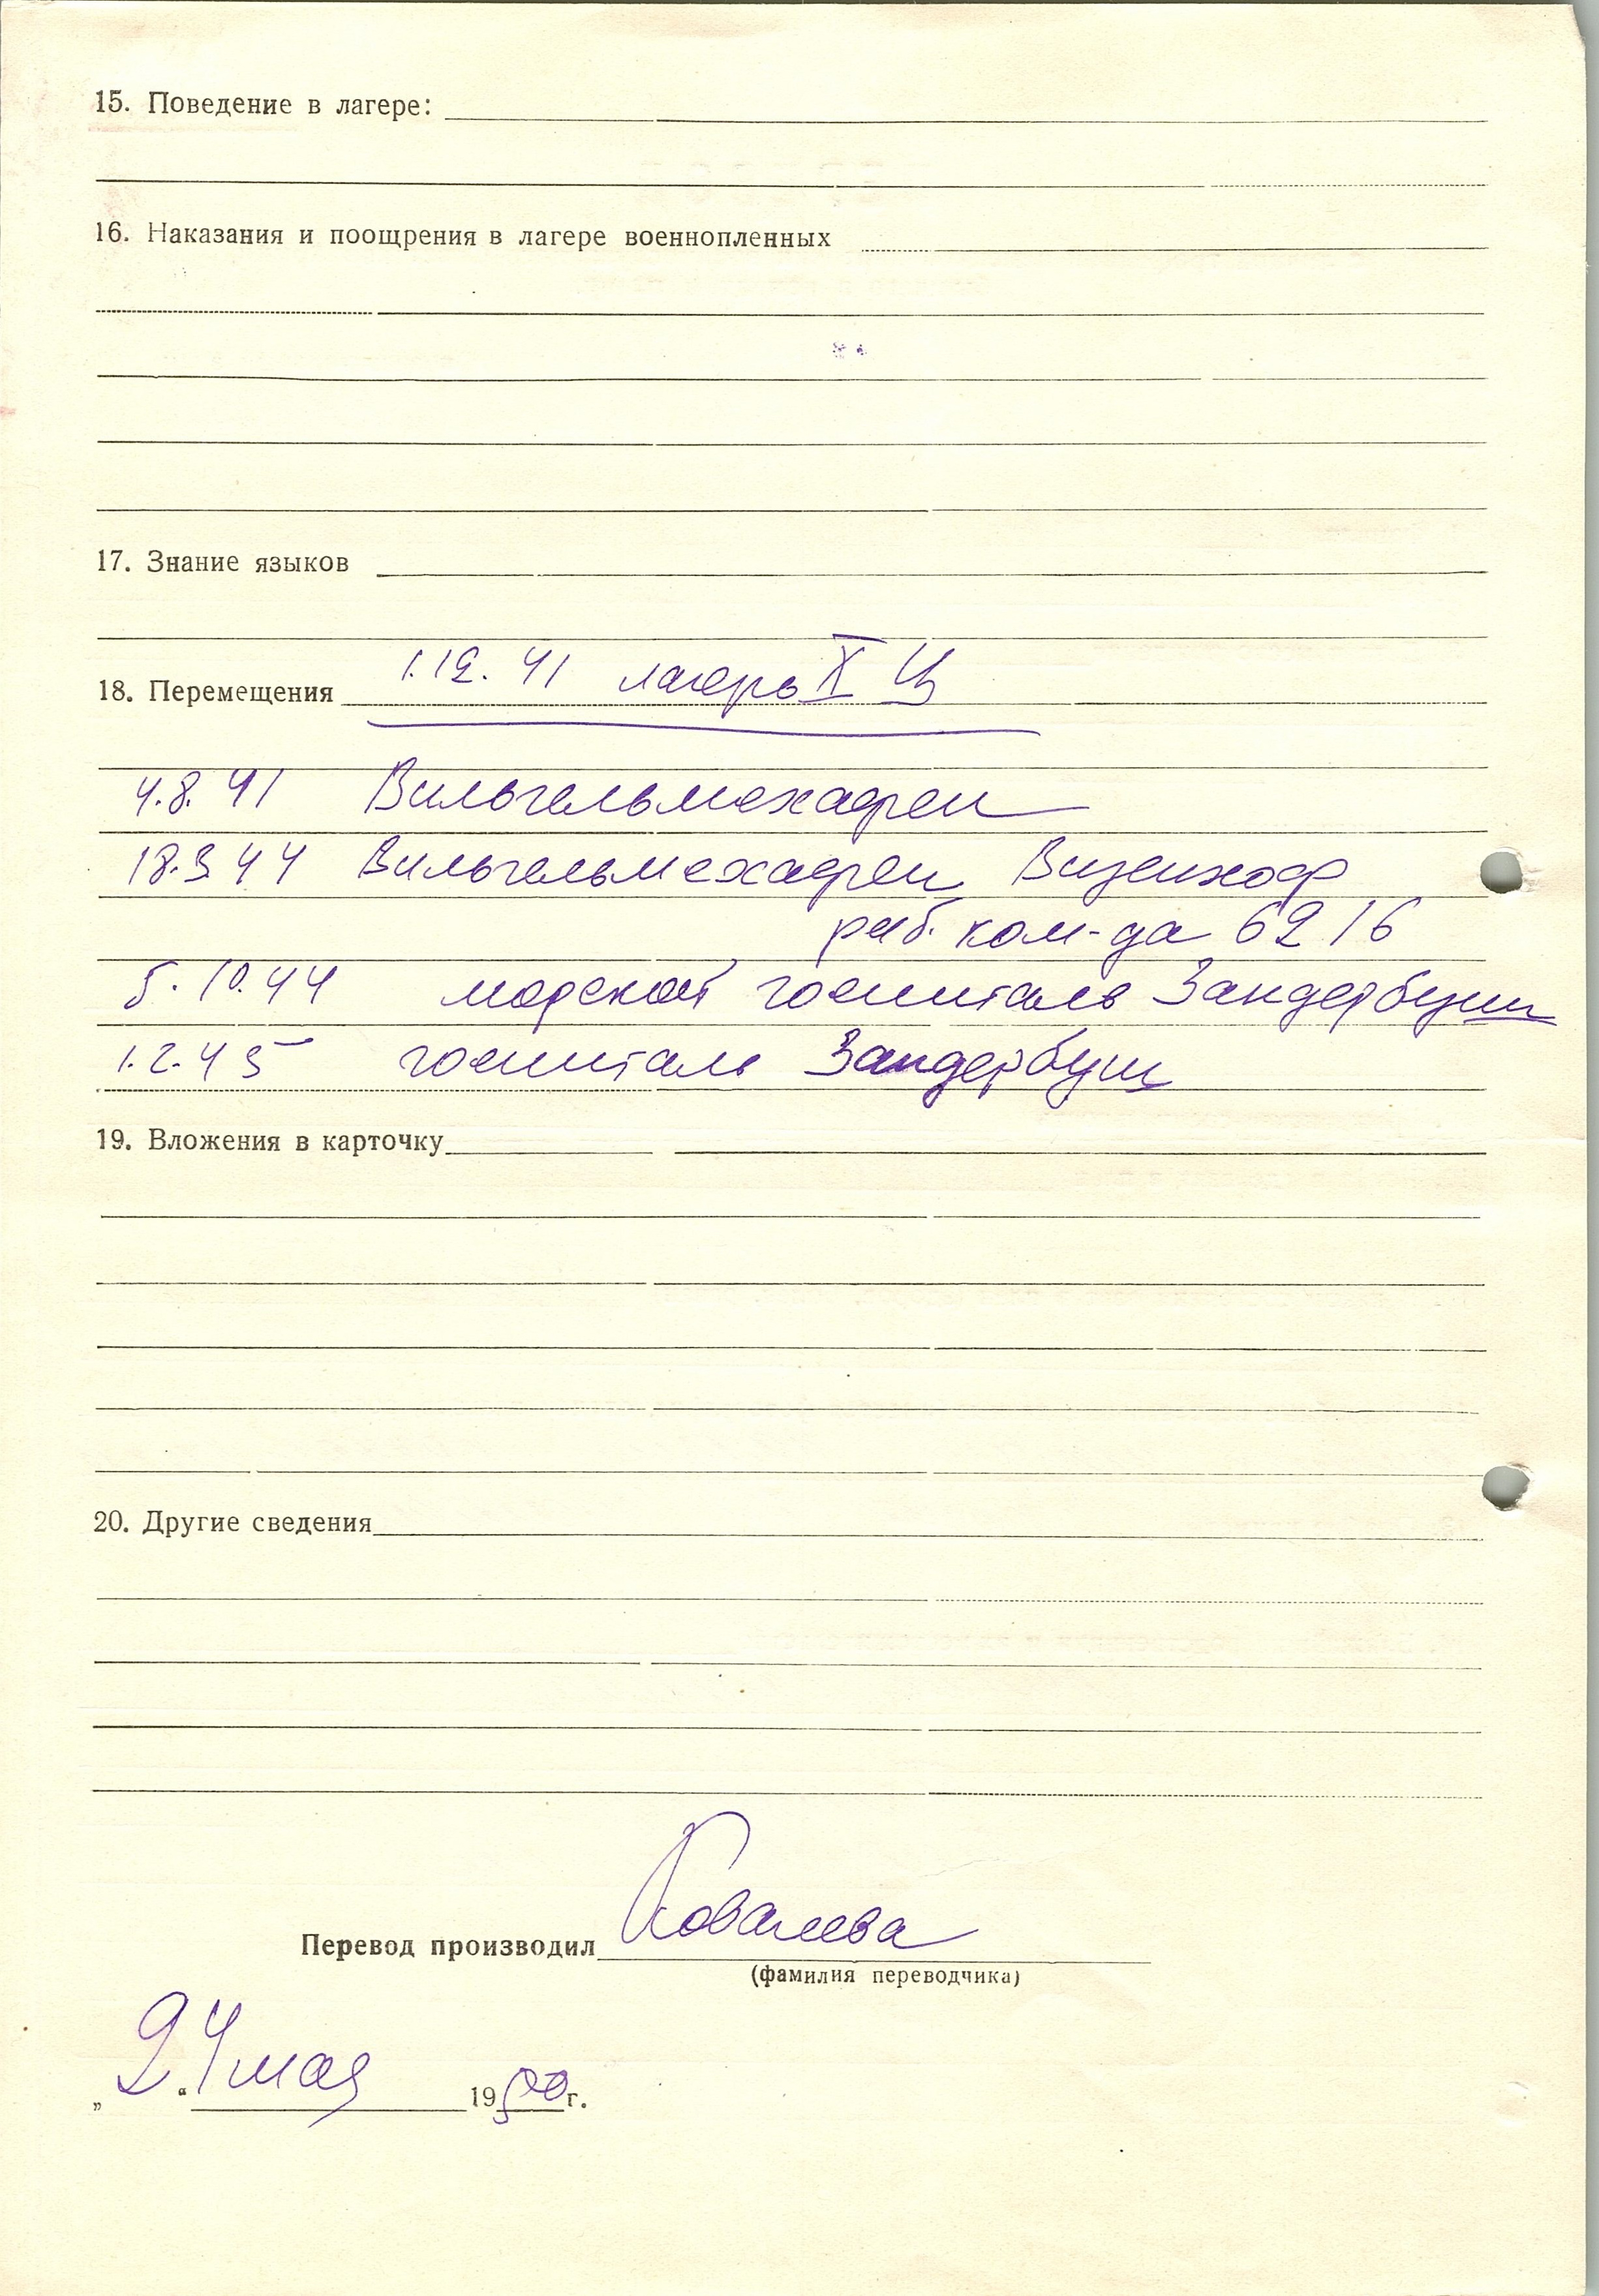 15. Поведение в лагере:
16. Наказания и поощрения в лагере военнопленных
17. Знание языков
18. Перемещения 1.12.41 лагерь X Ц
4.8.41 Вильгельмехафен
18.3 44 Вильгельмехафен Визенхоф
раб. ком-да 6216
5.10.44 морской госпиталь Зандербуш
1.2.45 госпиталь Зандербуш
19. Вложения в карточку
20. Другие сведения
Перевод производил Ковалева
(фамилия переводчика)
„24“ мая 1950 г.